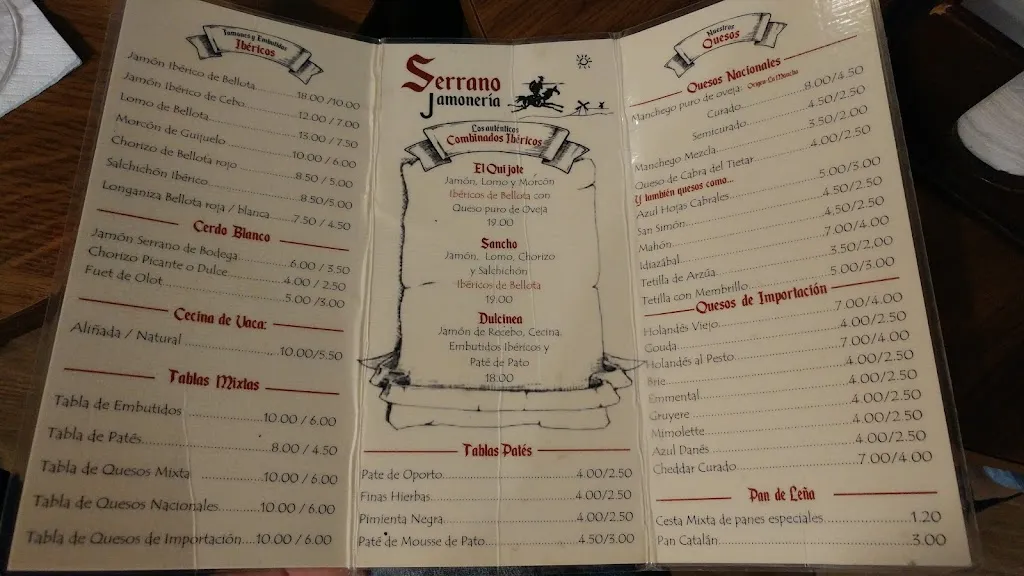 Jamones y Embutidos
Ibéricos
Jamón Ibérico de Bellota 18.00 /10.00
Jamón Ibérico de Cebo 12.00 / 7.00
Lomo de Bellota 13.00 / 7.50
Morcón de Guijuelo 10.00 / 6.00
Chorizo de Bellota rojo 8.50 / 5.00
Salchichón Ibérico 8.50/5.00
Longaniza Bellota roja / blanca 7.50 / 4.50
Cerdo Blanco
Jamón Serrano de Bodega 6.00 / 3.50
Chorizo Picante o Dulce 4.00 / 2.50
Fuet de Olot 5.00 /3.00
Cecina de Vaca:
Aliñada / Natural 10.00/5.50
Tablas Mixtas
Tabla de Embutidos 10.00 / 6.00
Tabla de Patés 8.00 / 4.50
Tabla de Quesos Mixta 10.00 / 6.00
Tabla de Quesos Nacionales 10.00 / 6.00
Tabla de Quesos de Importación 10.00 / 6.00
Serrano
Jamonería
Los auténticos
Combinados Ibéricos
El Quijote
Jamón, Lomo y Morcón
Ibéricos de Bellota con
Queso puro de Oveja
19.00
Sancho
Jamón, Lomo, Chorizo
y Salchichón
Ibéricos de Bellota
19.00
Dulcinea
Jamón de Recebo, Cecina.
Embutidos Ibéricos y
Paté de Pato
18.00
Tablas Patés
Pate de Oporto 4.00/2.50
Finas Hierbas 4.00/2.50
Pimienta Negra 4.00/2.50
Paté de Mousse de Pato 4.50/3.00
Nuestros
Quesos
Quesos Nacionales
Manchego puro de oveja: Origen La Mancha
Curado 8.00/4.50
Semicurado 4.50/2.50
Manchego Mezcla 3.50/2.00
Queso de Cabra del Tietar 4.00/2.50
Y también quesos como...
Azul Hojas Cabrales 5.00/3.00
San Simón 4.50/2.50
Mahón 4.50/2.50
Idiazábal 7.00/4.00
Tetilla de Arzúa 3.50/2.00
Tetilla con Membrillo 5.00/3.00
Quesos de Importación
Holandés Viejo 7.00/4.00
Gouda 4.00/2.50
Holandés al Pesto 7.00/4.00
Brie 4.00/2.50
Emmental 4.00/2.50
Gruyere 4.00/2.50
Mimolette 4.00/2.50
Azul Danés 4.00/2.50
Cheddar Curado 7.00/4.00
Pan de Leña
Cesta Mixta de panes especiales 1.20
Pan Catalán 3.00